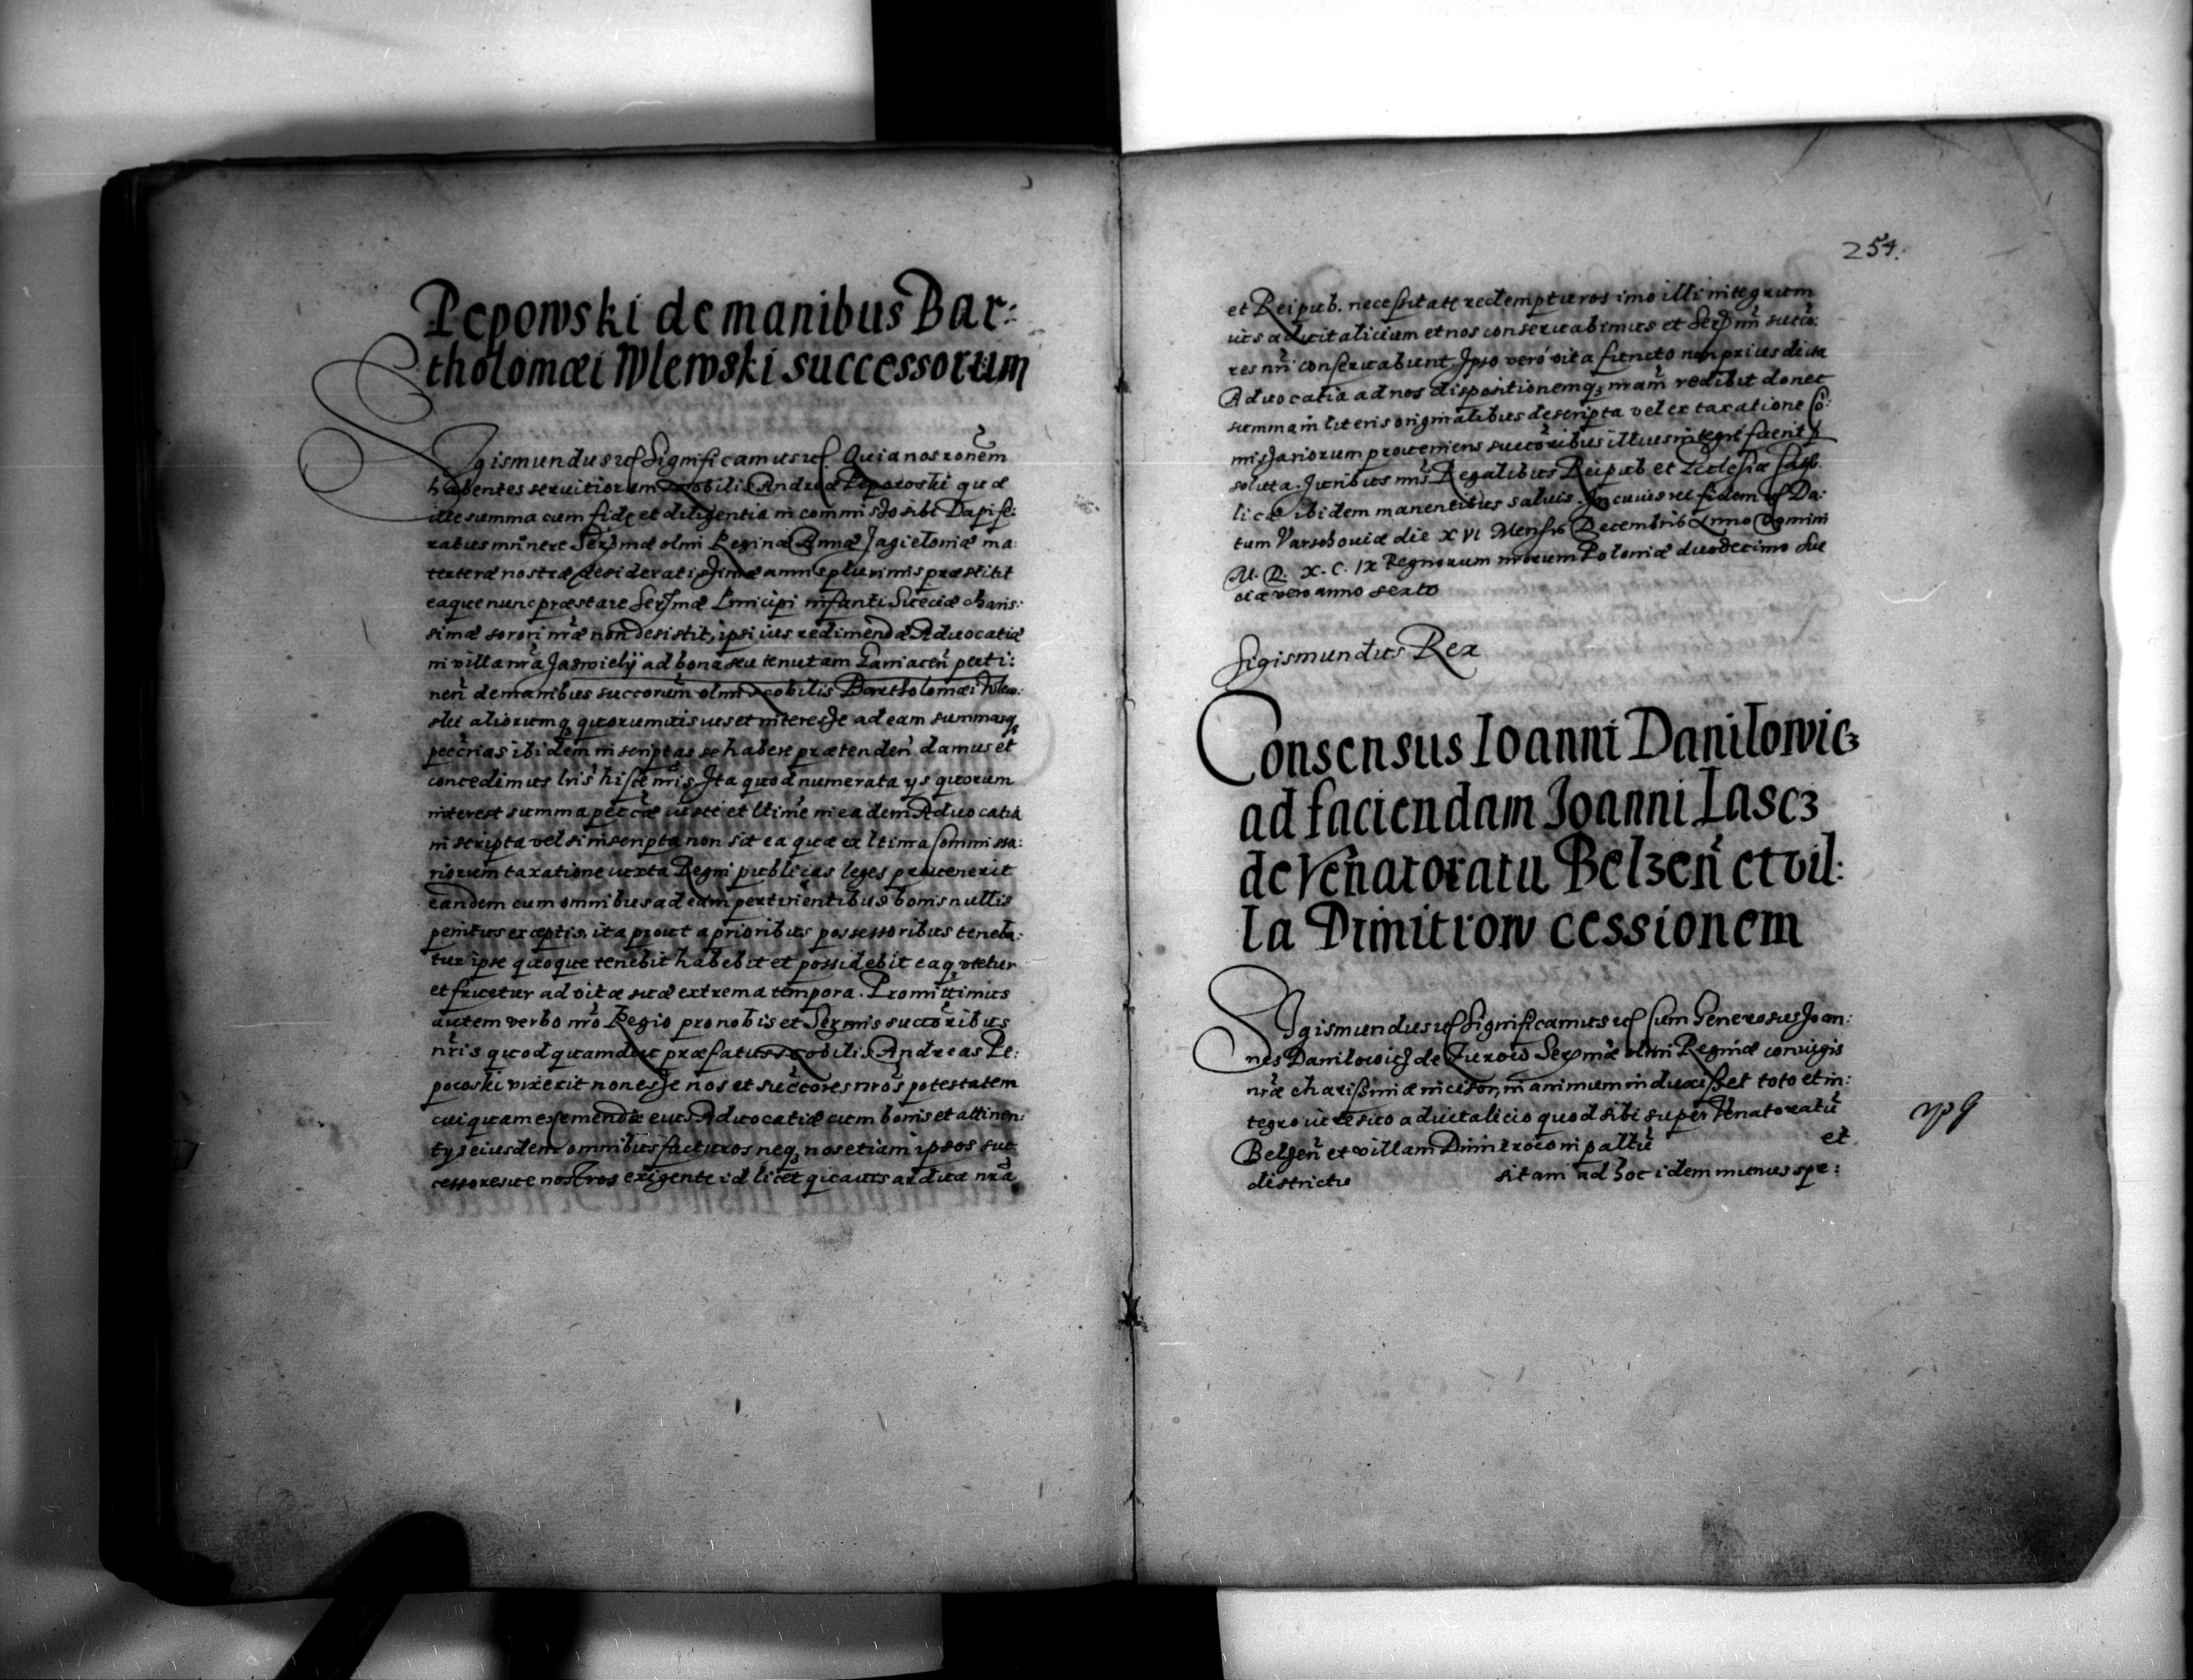 Pepowski de manibus Bar:
tholomæi Wlewski successorum
Sigismundus etc Significamus etc. Quia nos rõnem
habentes servitiorum Nobilis Andreæ Peporoski quæ
ille summa cum fide et diligentia in commisso sibi Dapife:
ratus munere Sersmæ olim Reginæ Annæ Jagieloniæ ma:
terteræ nostræ desideratissimæ annis plurimis præstitit
eaque nunc præstare Sersmæ Principi infanti Sueciæ charis:
simæ sorori nræ non desistit, ipsi ius redimendæ Advocatiæ
in villa nra Jaswiely ad bona seu tenutam Laniacen perti:
nen de manibus succorum olim Nobilis Bartholomæi Wlew:
ski aliorumq quorumvis ius et interesse ad eam summasq
pecrias ibidem inscriptas se habere prætenden damus et
concedimus lris hisce nris. Ita quod numerata ijs quorum
interest summa peccæ iuste et ltime in eadem Advocatia
inscripta vel si inscripta non sit ea quæ ex ltima Commissa:
riorum taxatione iuxta Regni publicas leges provenerit
eandem cum omnibus ad eam pertinentibus bonis nullis
penitus exceptis, ita prout a prioribus possessoribus teneba:
tur ipse quoque tenebit habebit et possidebit eaq utetur
et fruetur ad vitæ suæ extrema tempora. Promittimus
autem verbo nro Regio pro nobis et Sermis succoribus
nris quod quamdiu præfatus Nobilis Andreas Pe:
poroski vixerit non esse nos et succores nros potestatem
cuiquam eximendæ eius Advocatiæ cum bonis et attinen:
tijs eiusdem omnibus facturos neq, nos etiam ipsos suc
cessoresve nostros exigente id licet qicavis ardua nra
254.
et Reipub. necessitate redempturos imo illi integrum
ius advitalicium et nos conservabimus et Sersmi succo:
res nri conservabunt. Ipso vero vita functo non prius dicta
Advocatia ad nos dispositionemq, nram redibit donec
summa in literis originalibus descripta vel ex taxatione Co:
missariorum proveniens succoribus illius integre fuerit p
soluta. Juribus nris Regalibus Reipub et Ecclesiæ Catho:
licæ ibidem manentibus salvis. In cuius rei fidem etc Da:
tum Varschoviæ die XVI Mensis Decembris Anno Domini
M. D. X. C. IX Regnorum nrorum Poloniæ duodecimo Sue
ciæ vero anno sexto
Sigismundus Rex
Consensus Ioanni Danilowic3
ad faciendam Joanni Lasc3
de Venatoratu Bel3en et vil:
la Dimitrow cessionem
Sigismundus etc Significamus etc Cum Generosus Joan:
nes Danilowicz de Zurow Sersmæ olim Reginæ coniugis
nræ charissimæ incisor, in animum induxisset toto et in:
tegro iure suo advitalicio quod sibi super Venatoratu
Belzen et villam Dimitrow in paltu et
districtu sitam ad hoc idem munus spe: